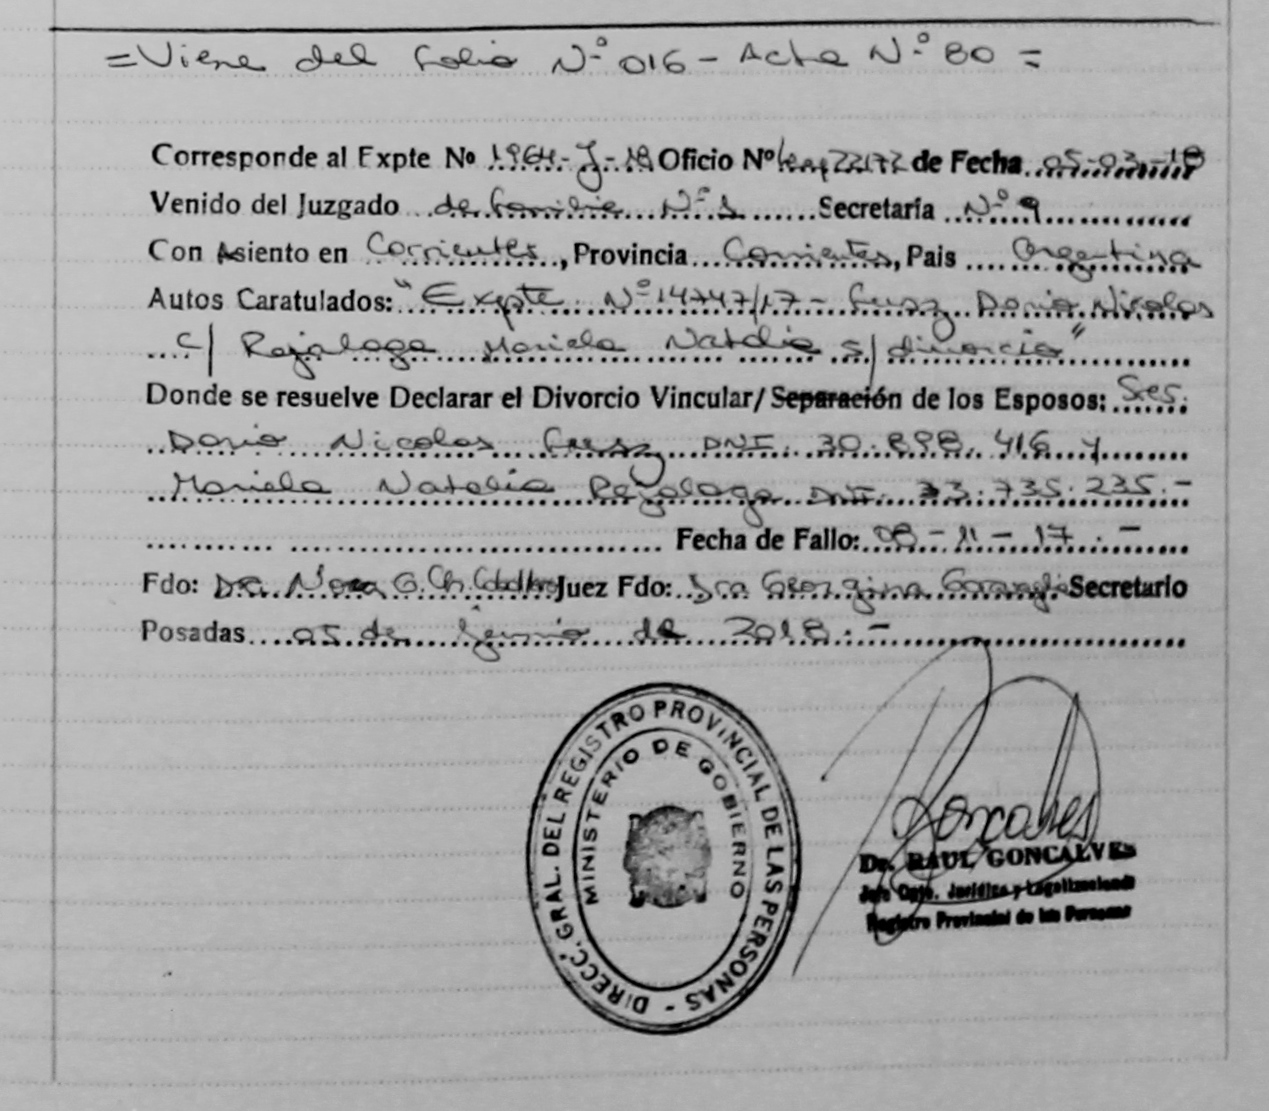 =Viene del Folio N° 016 - Acta N° 80 =
Corresponde al Expte Nº 1964-J-18 Oficio Nº 22172 de Fecha 05-03-18
Venido del Juzgado de Familia N° 1 Secretaría N° 9
Con Asiento en Corrientes, Provincia Corrientes, Pais Argentina
Autos Caratulados: "Expte. N° 14747/17 - Dario Nicolas
c/ Mariela Natalia s/ divorcio"
Donde se resuelve Declarar el Divorcio Vincular/ Separación de los Esposos: Sres.
Dario Nicolas DNI. 30.898.416 y
Mariela Natalia DNI. 33.735.235.-
Fecha de Fallo: 08-11-17.-
Fdo: Dra. Juez Fdo: Dra Georgina Secretario
Posadas 05 de Junio de 2018.-
DIRECC. GRAL. DEL REGISTRO PROVINCIAL DE LAS PERSONAS -
MINISTERIO DE GOBIERNO
Goncalves
Dr. RAUL GONCALVES
Jefe Dpto. Jurídico y Legalizaciones
Registro Provincial de las Personas